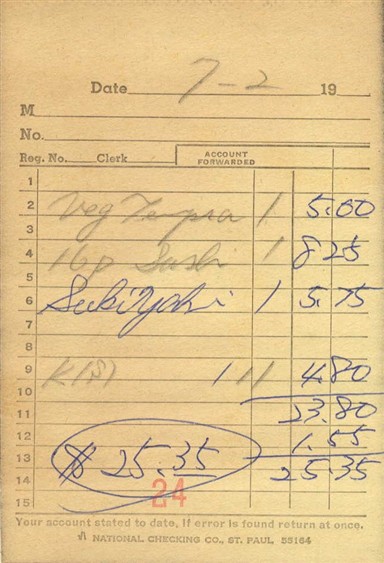 Date 7-2 19
M
No.
Reg. No. Clerk ACCOUNT FORWARDED
1
2 Veg Tempra 1 5.00
3
4 16p Sushi 1 8.25
5
6 Sukiyaki 1 5.75
7
8
9 K(S) 1 11 4.80
10
11 23.80
12 1.55
13 $ 25.35 25.35
14 24
15
Your account stated to date. If error is found return at once.
NATIONAL CHECKING CO., ST. PAUL 55164